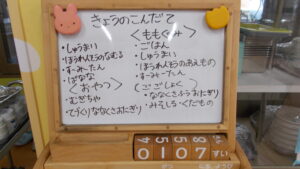 きょうのこんだて
・しゅうまい
・ほうれんそうのなむる
・すーみーたん
・ばなな
＜おやつ＞
・むぎちゃ
・てづくりななくさおにぎり
＜ももぐみ＞
・ごはん
・しゅうまい
・ほうれんそうのあえもの
・すーみーたん
＜ごごしょく＞
・ななくさふうおにぎり
・みそしる・くだもの
0107 すい